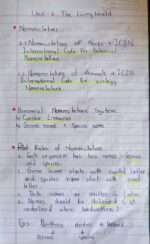 Unit - 1 The Living World
• Nomenclature
→ Nomenclature of Plants → ICBN
International Code for Botanical
Nomenclature
→ Nomenclature of Animals → ICZN
International Code for Zoology
Nomenclature
• Binomial Nomenclature System
→ Carolus Linnaeus
→ Generic name + Species name
• Rules of Nomenclature
Each organism has two names - genus
and species
Genus name starts with capital letter
and species name starts with small
letter
names are written in
Names should be
underlined when handwritten
Eg: